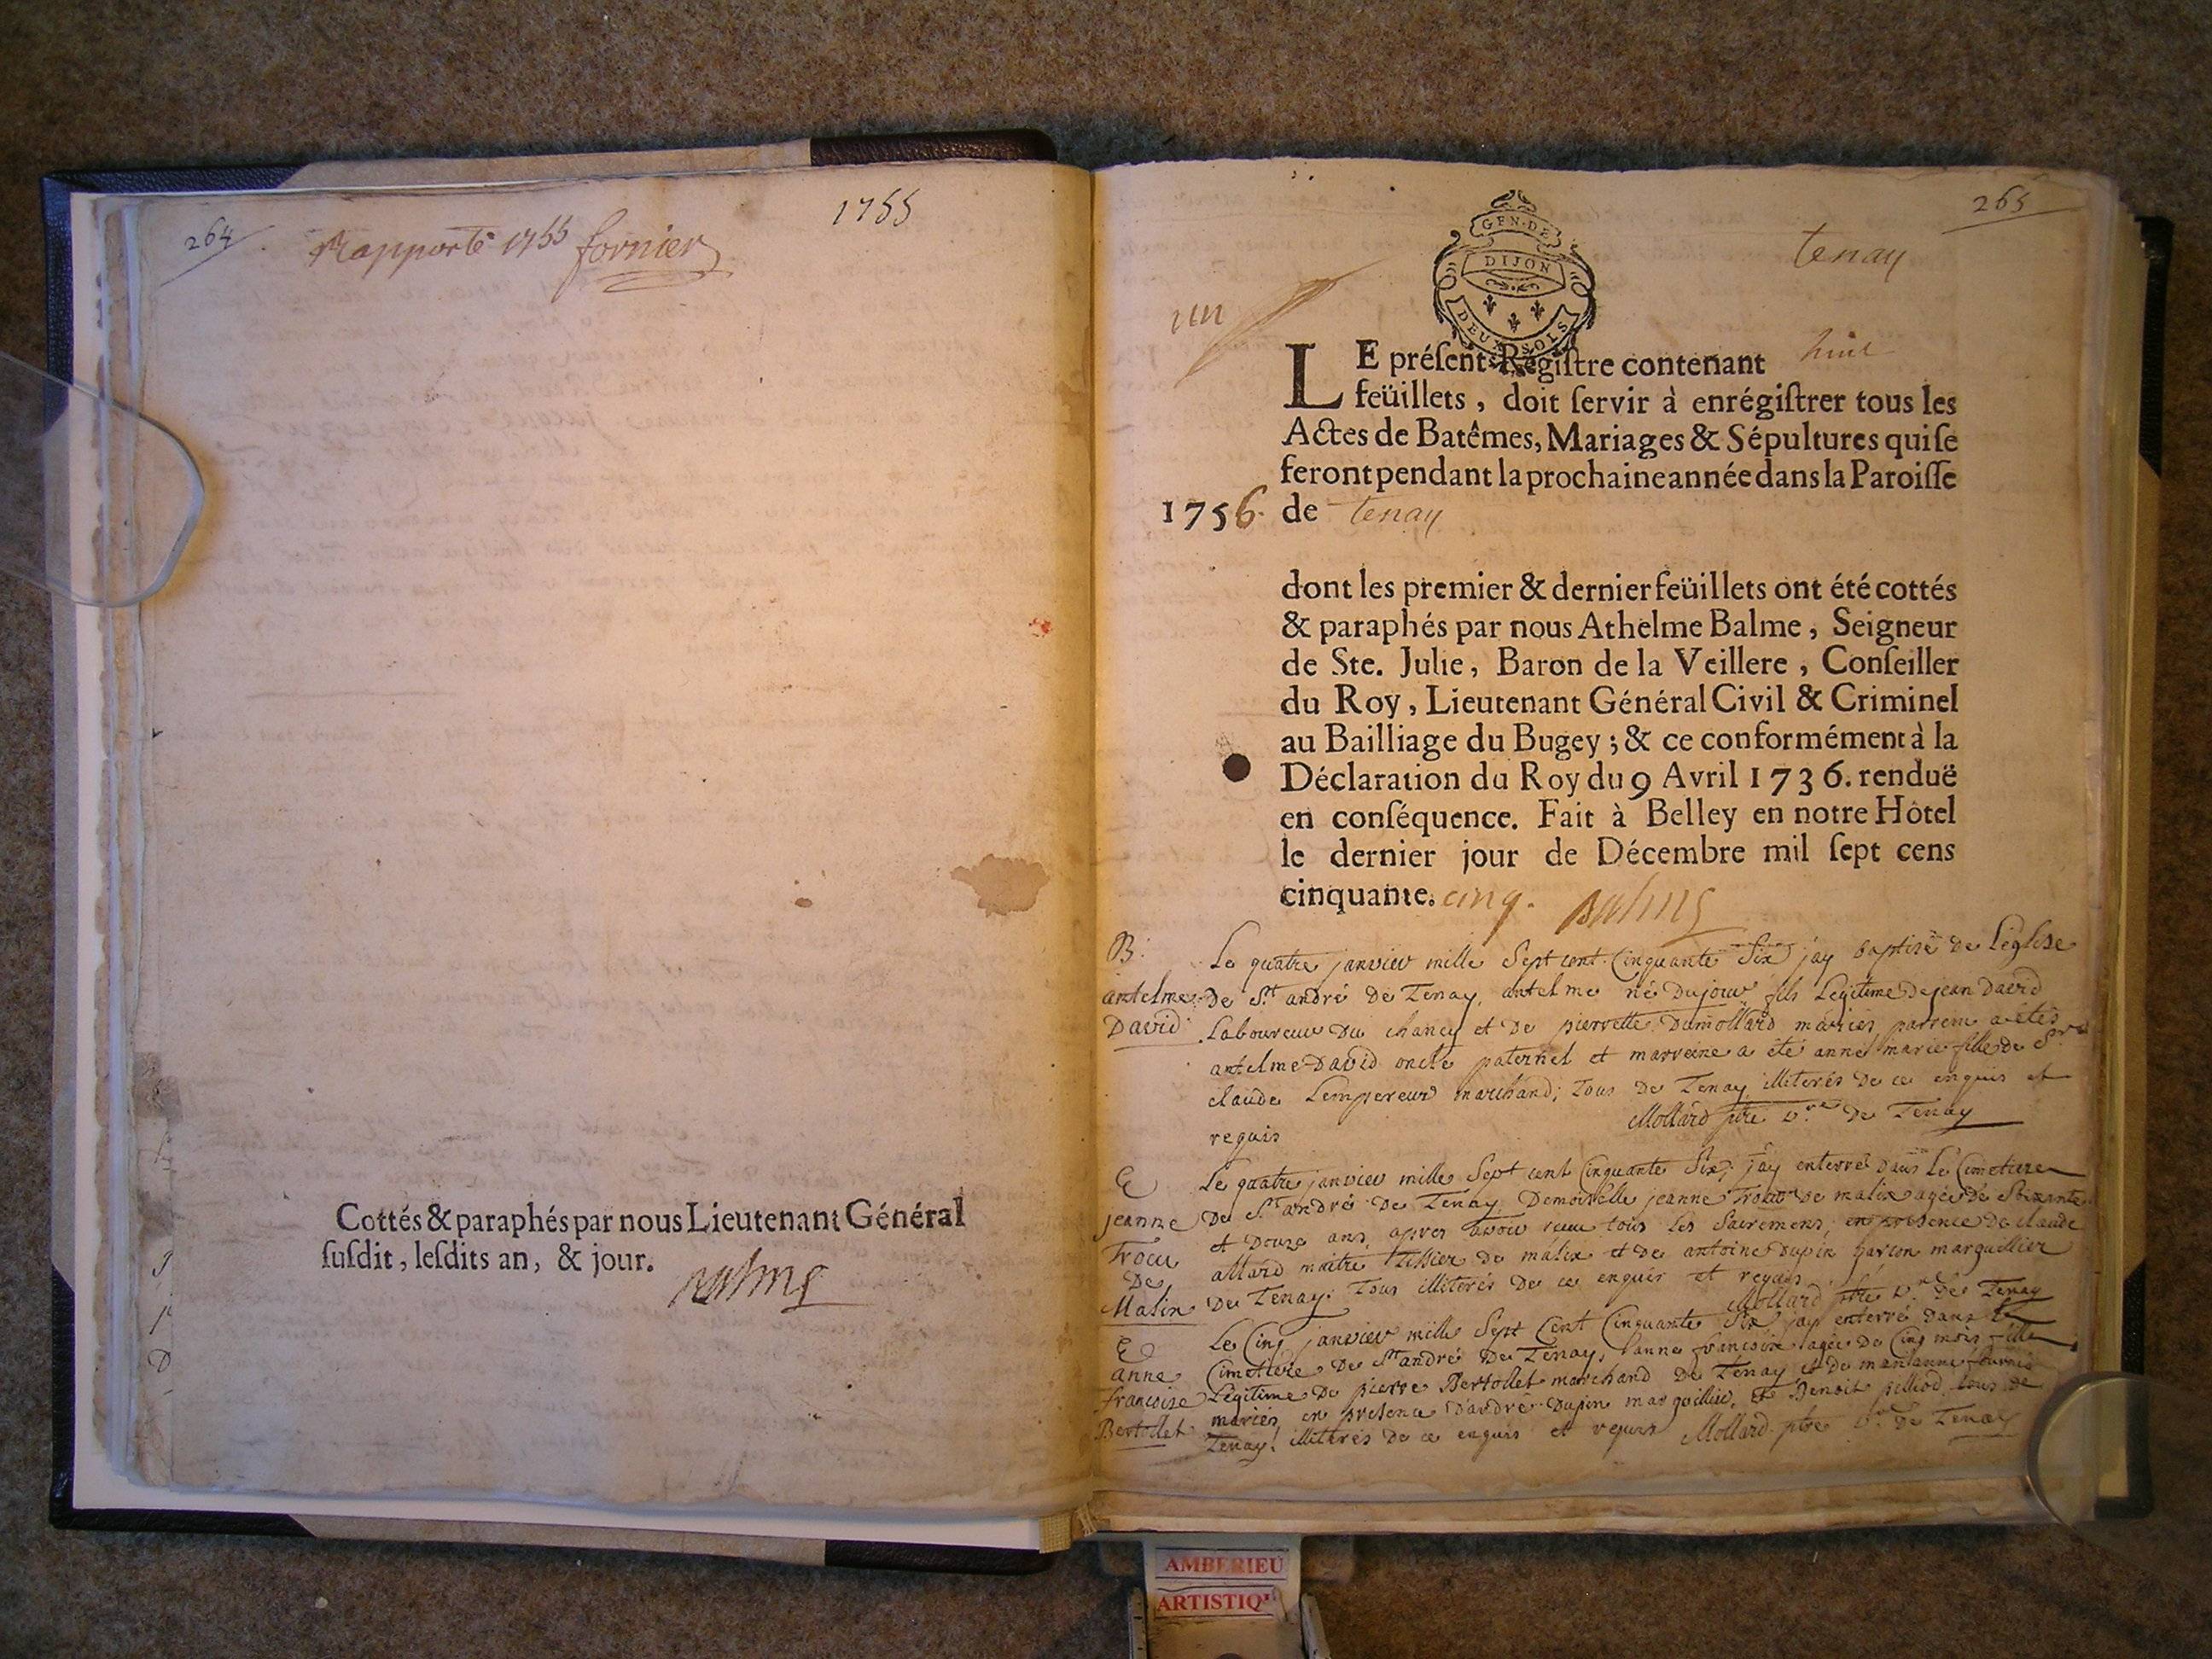 264
Rapporté 1755 fornier
1755
Cottés & paraphés par nous Lieutenant Général
susdit, lesdits an, & jour.
Balme
265
tenay
GEN·DE
DIJON
DEUX SOLS
un
LE présent Régistre contenant huit
feüillets, doit servir à enrégistrer tous les
Actes de Batêmes, Mariages & Sépultures qui se
feront pendant la prochaine année dans la Paroisse
1756. de tenay
dont les premier & dernier feüillets ont été cottés
& paraphés par nous Athelme Balme, Seigneur
de Ste. Julie, Baron de la Veillere, Conseiller
du Roy, Lieutenant Général Civil & Criminel
au Bailliage du Bugey ; & ce conformément à la
Déclaration du Roy du 9 Avril 1736. renduë
en conséquence. Fait à Belley en notre Hôtel
le dernier jour de Décembre mil sept cens
cinquante. cinq. Balme
B.
antelme
David
Le quatre janvier mille Sept cent Cinquante Six jay baptisé de Leglise
de St. andré de Tenay, antelme né Dujour fils Legitime de jean David
Laboureur du chaney et de pierrette Dumollard mariés, parrein a été
antelme David oncle paternel et marreine a été anne marie fille de Sr.
claude Lempereur marchand; tous de Tenay illiterés de ce enquis et
requis Mollard ptre v.re de Tenay
E
jeanne
Trocu
De
Malix
Le quatre janvier mille Sept cent Cinquante Six, jay enterré dans Le Cimetiere
De St. andré De Tenay Demoiselle jeanne Trocu de malix agée de Soixante
et Douze ans, apres avoir reçu tous les Sacremens, en presence de claude
allard maitre tissier de malix et de antoine Dupin garcon marguillier
De Tenay. Tous illiterés de ce enquis et requis Mollard ptre v.re de Tenay
E
anne
francoise
Bertollet
Le Cinq janvier mille Sept Cent Cinquante Six jay enterré dans le
Cimetiere De St andré De Tenay, anne francoise agée de Cinq mois fille
Légitime De pierre Bertollet marchand De Tenay et de marianne
mariés, en presence d'andré Dupin marguillier, et Benoit pilliod tous de
Tenay! illiterés de ce enquis et requis Mollard ptre v.re de Tenay
AMBERIEU
ARTISTIQ